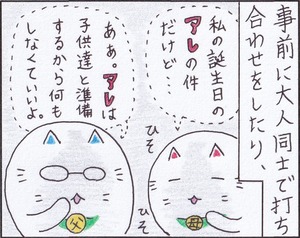 事前に大人同士で打ち
合わせをしたり、
私の誕生日の
アレの件
だけど…
ああ。アレは
子供達と準備
するから何も
しなくていいよ。
ひそ
ひそ
母
父